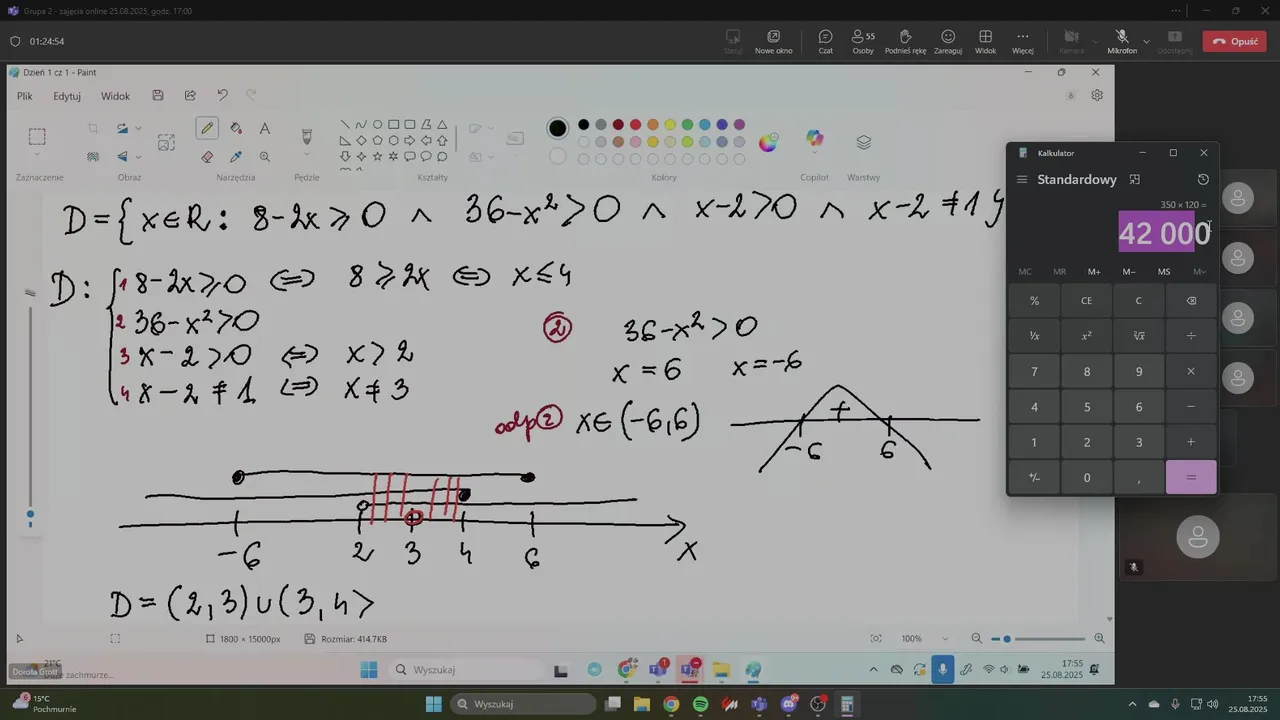 Grupa 2 - zajęcia online 25.08.2025, godz. 17:00
01:24:54
Steruj
Nowe okno
Czat
55
Osoby
Podnieś rękę
Zareaguj
Widok
Więcej
Kamera
Mikrofon
Udostępnij
Opuść
Dzień 1 cz 1 - Paint
Plik Edytuj Widok
Zaznaczenie Obraz Narzędzia Pędzle Kształty Kolory Copilot Warstwy
D={x∈R: 8-2x⩾0 ∧ 36-x²>0 ∧ x-2>0 ∧ x-2≠1}
D:
1 8-2x⩾0 ⟺ 8⩾2x ⟺ x≤4
2 36-x²>0
3 x-2>0 ⟺ x>2
4 x-2≠1 ⟺ x≠3
② 36-x²>0
x=6 x=-6
odp② x∈(-6,6)
+
-6 6
-6 2 3 4 6 x
D=(2,3)∪(3,4>
1800 × 15000px
Rozmiar: 414.7KB
100%
21°C
Dorota Grott
Duże zachmurze...
Wyszukaj
1
17:55
25.08.2025
Kalkulator
Standardowy
350 × 120 =
42 000
MC MR M+ M− MS M˅
% CE C
¹/x x² ²√x ÷
7 8 9 ×
4 5 6 −
1 2 3 +
+/− 0 , =
6
15°C
Pochmurnie
Wyszukaj
17:55
25.08.2025